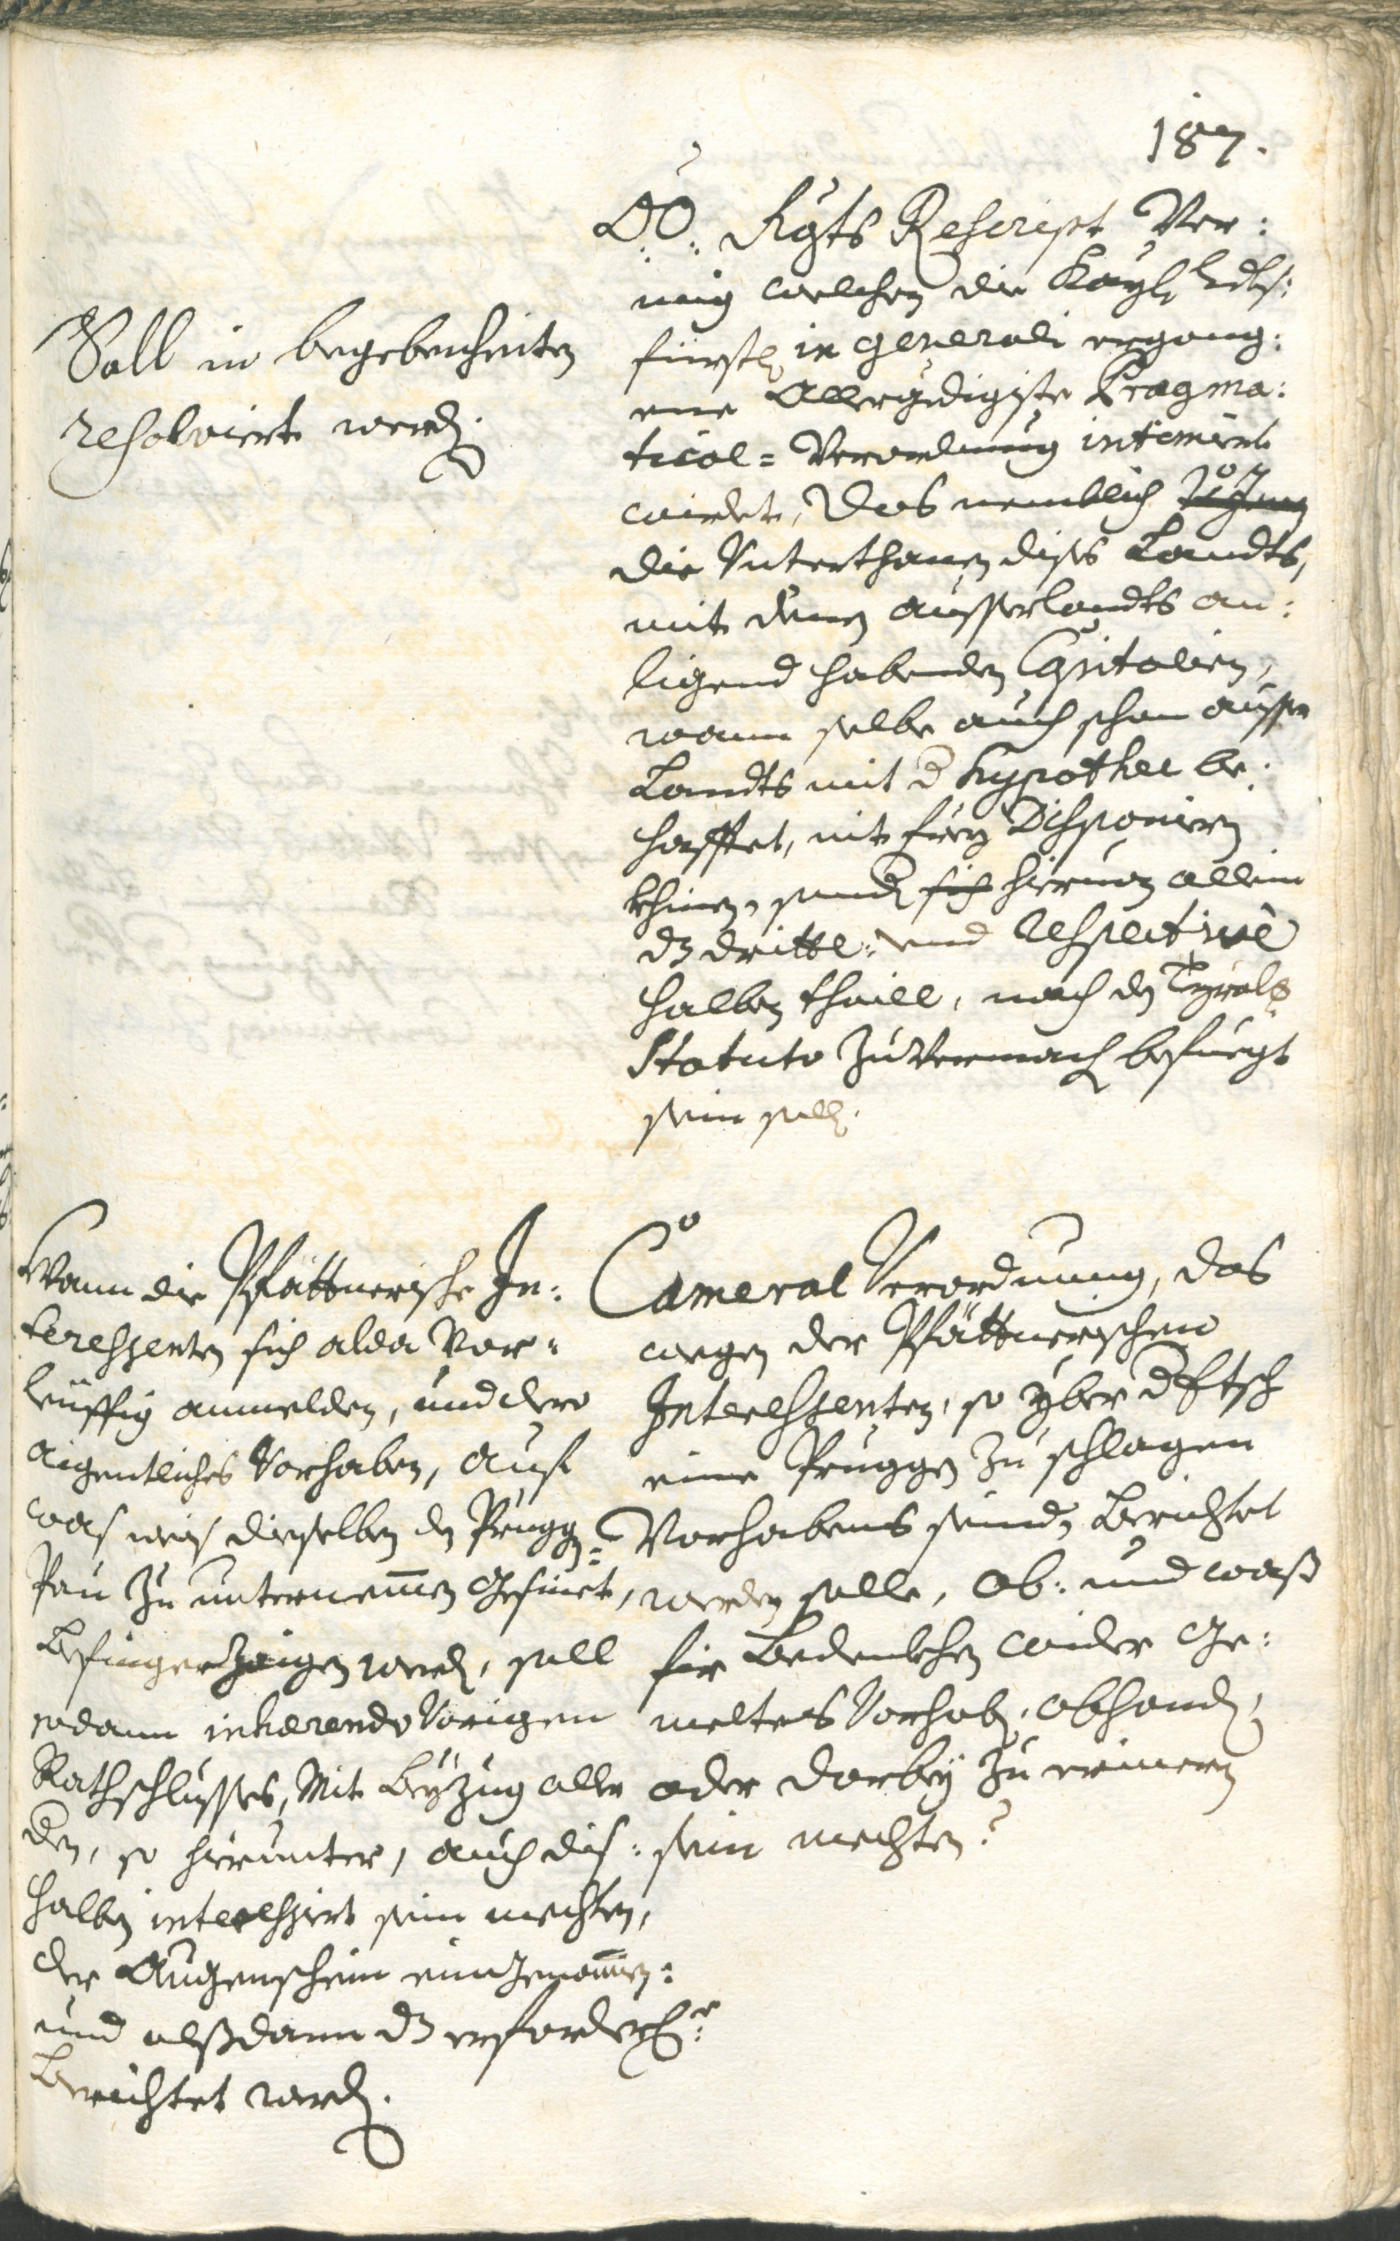 187.
Soll in begebenheiten
resolviert werd.
OÖ. Rgts Rescript Ver:
mig welchen die Kayl. Ldts:
fürstl. in generali ergang:
ene Allergdigiste Pragma:
tical= Verordnung intimiert
wirdet, Das nemblich
die Unterthanen dises Landts,
mit denen ausserlandts an:
ligend habenden Capitalien,
wann selbe auch schon ausser
Landts mit d Hypothec be:
hafftet, nit frey Disponiern
khinen, sond sich hieruon allein
dz dritte: und respectivè
halben thaill, nach dem Tyrols
Statuto zuvermachen befuegt
sein soll.
Wann die Pfattnerische In:
teressenten sich alda Vor:
leüffig anmelden, und dero
aigentliches Vorhaben, auf
was weis dieselben den Prugg=
Pau zu unternemen gesinet,
befingerzaigen werd, soll
sodann inhaerendo Vorigen
Rathschlusses, Mit Beyzug aller
den, so hierunter, auch dis:
halben interessiert sein mechten,
der Augenschein eingenomen:
und alßdann dz erforderl.
Berichtet werd.
Cameral Verordnung, das
wegen der Pfättnerischen
Interessenten, so yber d Etsch
eine Pruggen zu schlagen
Vorhabens seind, Berichtet
werden solle, Ob: und waß
fir Bedenkhen wider Ge:
meltes Vorhaben, obhand,
oder darbey zu erinern
sein mechten?